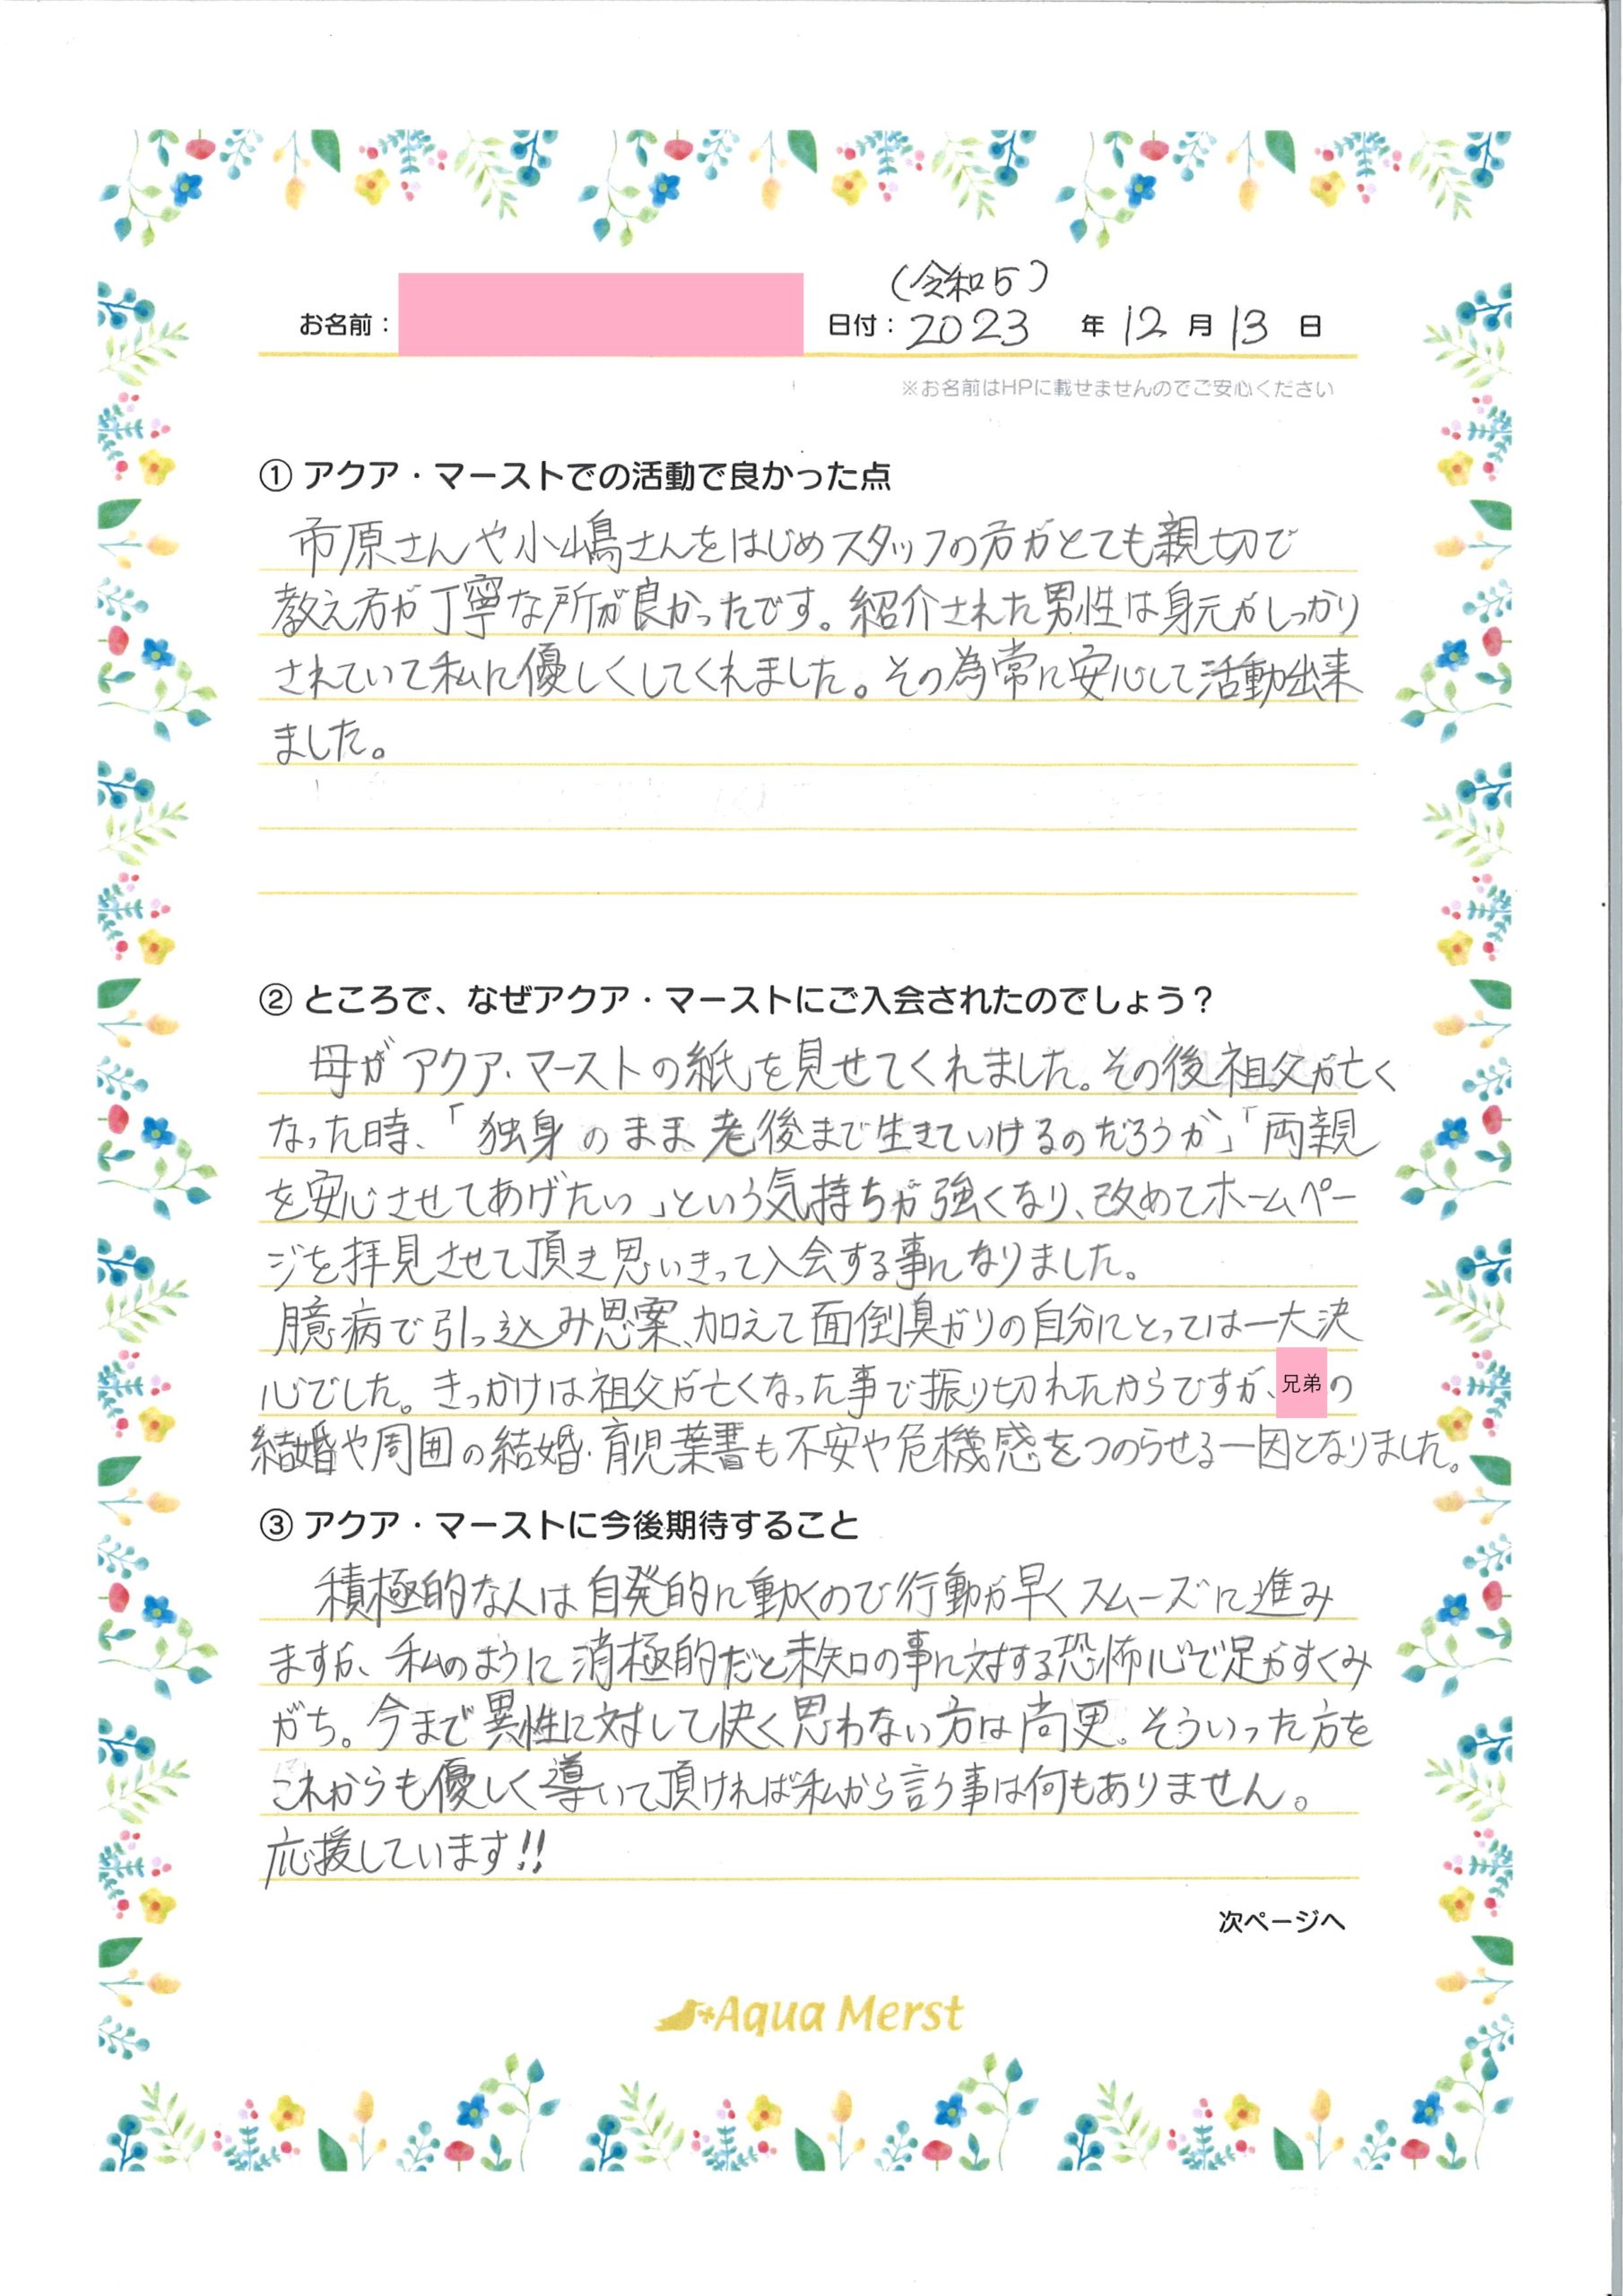 (令和5)
お名前： 日付：2023 年 12 月 13 日
※お名前はHPに載せませんのでご安心ください
① アクア・マーストでの活動で良かった点
市原さんや小嶋さんをはじめスタッフの方がとても親切で
教え方が丁寧な所が良かったです。紹介された男性は身元がしっかり
されていて私に優しくしてくれました。その為常に安心して活動出来
ました。
② ところで、なぜアクア・マーストにご入会されたのでしょう？
母がアクア・マーストの紙を見せてくれました。その後祖父が亡く
なった時、「独身のまま老後まで生きていけるのだろうか」「両親
を安心させてあげたい」という気持ちが強くなり、改めてホームペー
ジを拝見させて頂き思いきって入会する事になりました。
臆病で引っ込み思案、加えて面倒臭がりの自分にとっては一大決
心でした。きっかけは祖父が亡くなった事で振り切れたからですが、兄弟の
結婚や周囲の結婚・育児葉書も不安や危機感をつのらせる一因となりました。
③ アクア・マーストに今後期待すること
積極的な人は自発的に動くので行動が早くスムーズに進み
ますが、私のように消極的だと未知の事に対する恐怖心で足がすくみ
がち。今まで異性に対して快く思わない方は尚更。そういった方を
これからも優しく導いて頂ければ私から言う事は何もありません。
応援しています!!
次ページへ
Aqua Merst